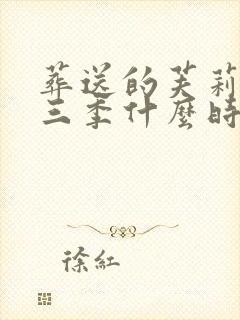 葬送的芙莉
三季什麼時
徐紅